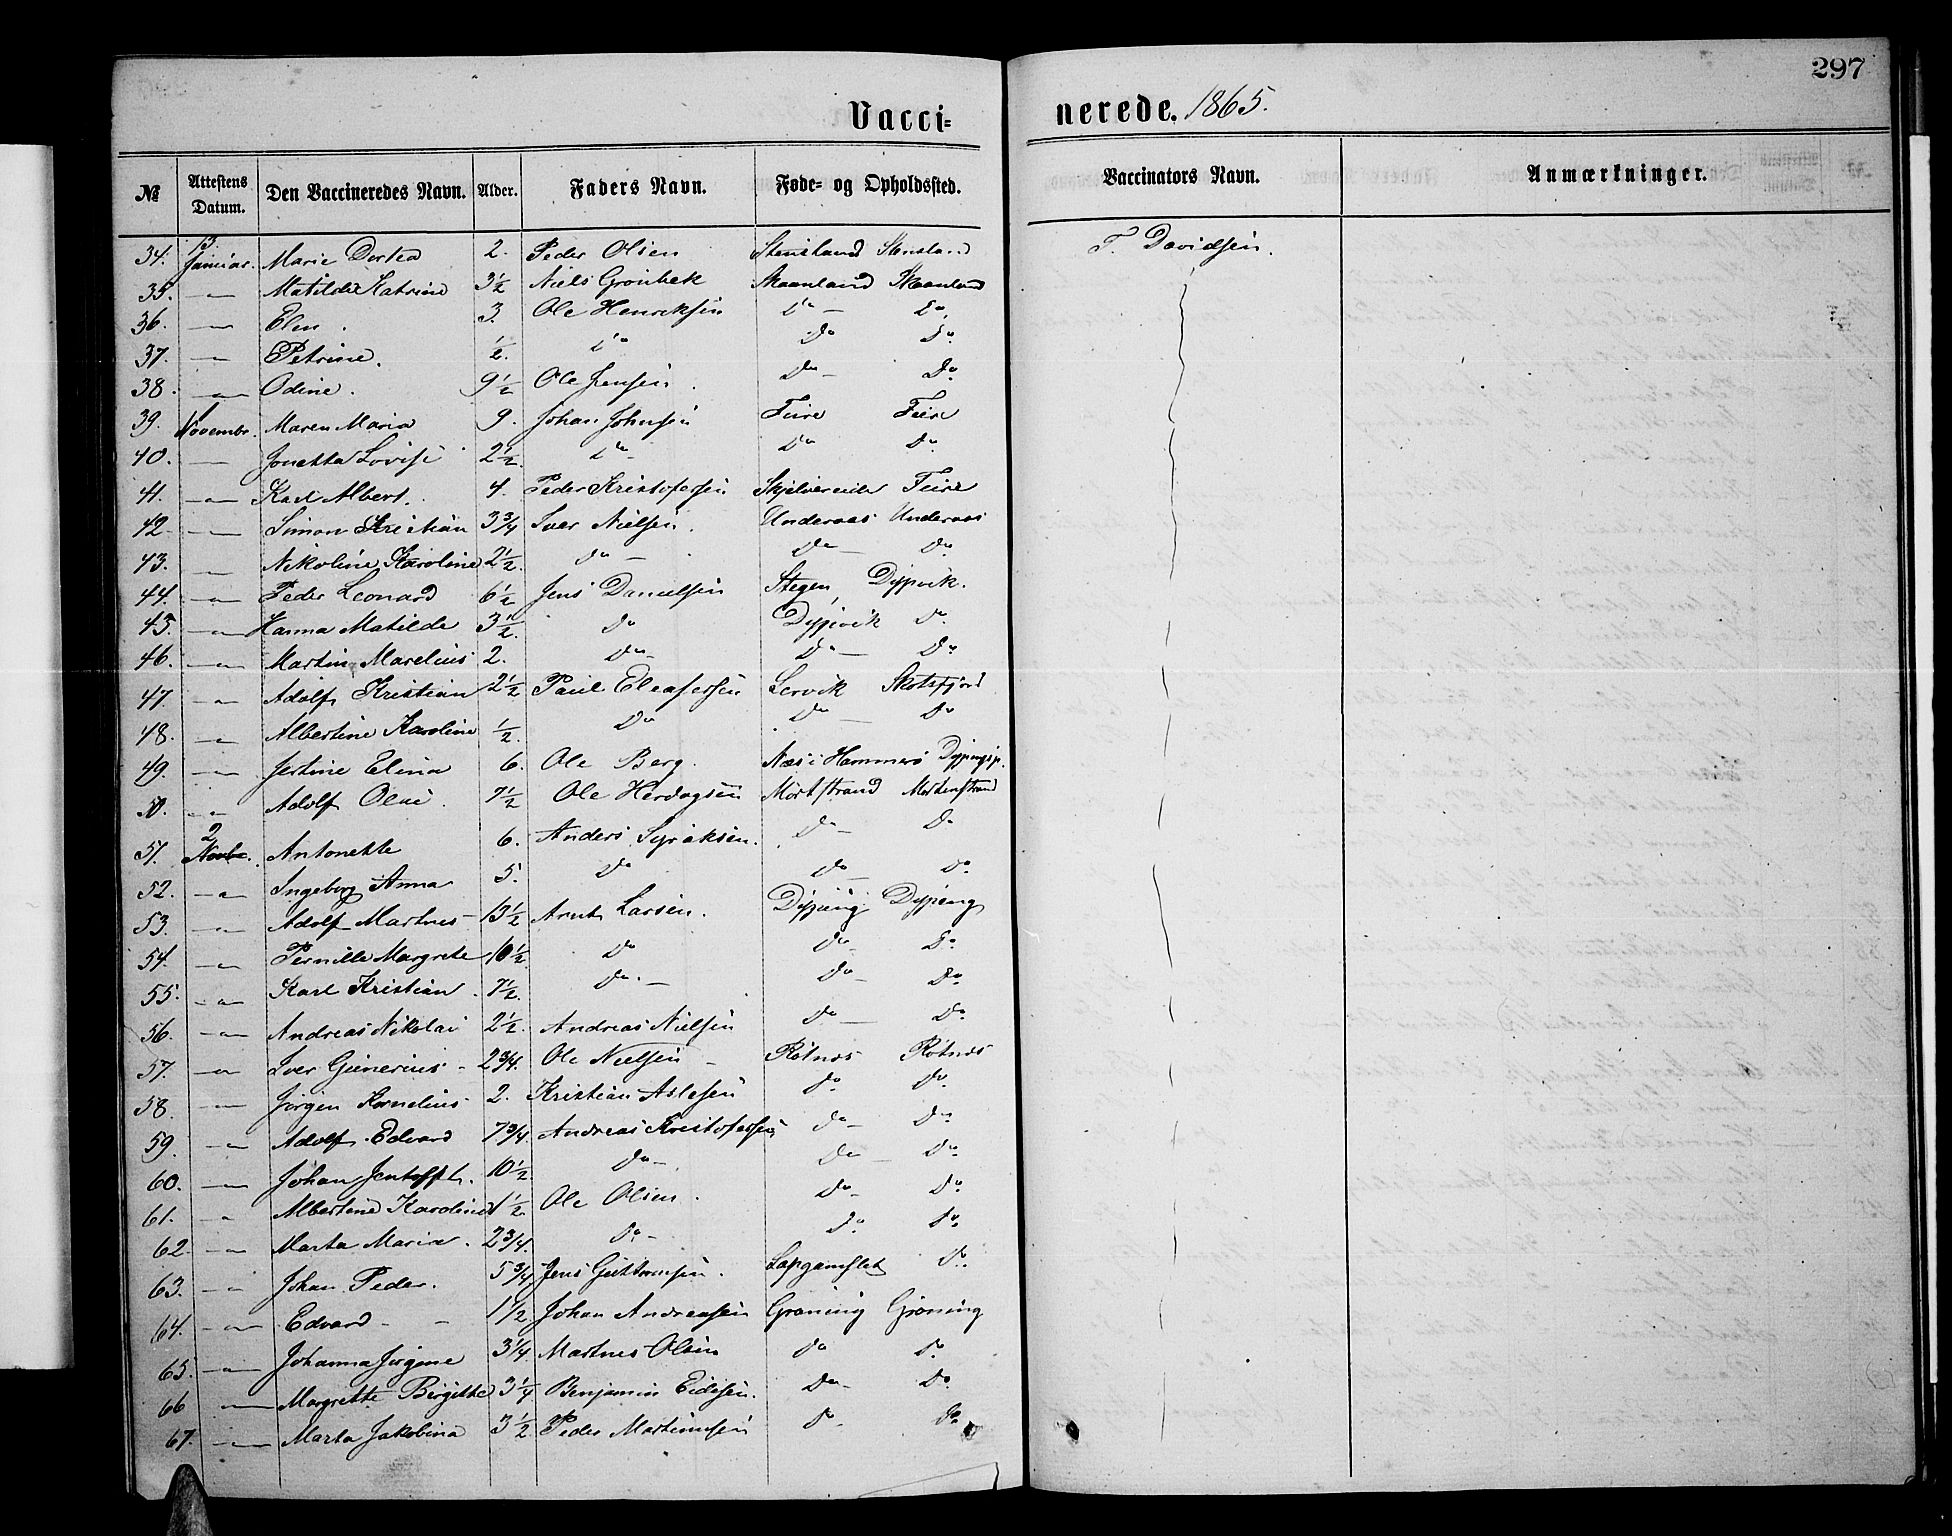 297
Vacci= nerede. 1865.
№ Attestens Datum. Den Vaccineredes Navn. Alder. Faders Navn. Føde= og Opholdssted. Vaccinators Navn. Anmærkninger.
34. 13 Januar. Marie Dortea 2. Peder Olsen Stensland Stensland T. Davidsen.
35. —"— Matilde Katrine 3½ Niels Grønbek Skaanland Skaanland
36. —"— Elen. 3. Ole Henriksen Do — Do
37. —"— Petrine. ½. Do Do Do
38. —"— Odine. 9½ Ole Jensen. Do — Do
39. Novembr. Maren Maria 9. Johan Johnsen Feire Feire
40. — Jonetta Lovise 2½. Do Do Do
41. —"— Karl Albert. 4. Peder Kristofersen Feire
42. —"— Simon Kristian 3¾ Iver Nielsen. Underaas Underaas
43. — Nikoline Karoline 2½. Do — Do — Do
44. —"— Peder Leonard 6½ Jens Danielsen Stegen, Dypvik.
45. —"— Hanna Matilde 3½. Do Dypvik Do
46. —"— Martin Marelius 2. Do Do — Do
47. —"— Adolf Kristian 2½ Paul Eleasersen Lervik Skotsfjord
48. —"— Albertine Karoline ½. Do Do — Do
49. —"— Jertine Elina 6. Ole Berg. Næs i Hammerø
50. —"— Adolf Olai. 7½ Ole Herdagsen Mortstrand Mortenstrand
51. 2 Novbr. Antonette 6. Anders Syraksen. Do — Do
52. —"— Ingeborg Anna 5. Do Do Do
53. —"— Adolf Martnes — 13½ Arnt Larsen. Dyping Dyping
54. —"— Pernille Margrete 10½. Do Do — Do
55. —"— Karl Kristian. 7½. Do — Do — Do
56. —"— Andreas Nikolai 2½. Andreas Nielsen Do — Do
57. —"— Iver Gunerius — 2¾. Ole Nielsen — Røtnes Røtnes
58. —"— Jørgen Kornelius 2. Kristian Aslesen Do Do
59. —"— Adolf Edvard 7¾. Andreas Kristofersen Do — Do
60. —"— Johan Jentofft. 10½. Do —. Do — Do
61. " Albertine Karoline 1½. Ole Olsen. Do — Do
62. —"— Marta Maria. 2¾. Do — Do Do
63. —"— Johan Peder. 5¾ Jens Guttormsen. Do
64. —"— Edvard — — 1½ Johan Andreasen Grøning Grøning
65. —"— Johanna Jørgine 3¼. Martnes Olsen Do Do
66 —"— Margrette Birgitte 3¼ Benjamin Eidisen. Do — Do
67. —"— Marta Jakobina 3½ Peder Martinusen Do — Do